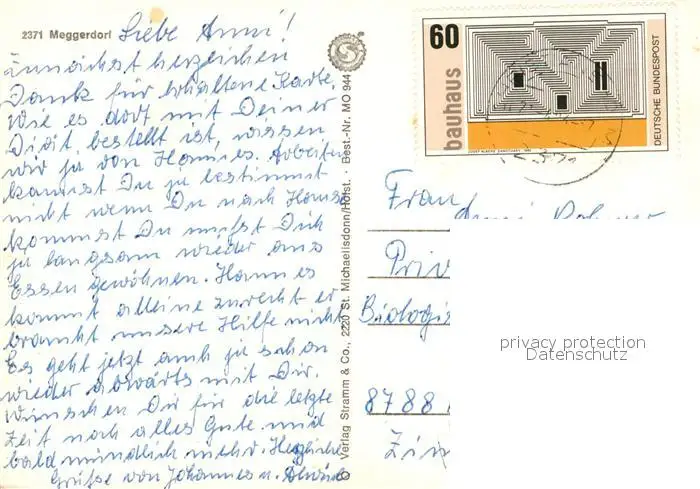 2371 Meggerdorf
Liebe Anni!
Zunächst herzlichen
Dank für erhaltene Karte.
Wie es dort mit Deiner
Diät bestellt ist, wissen
wir ja von Hannes. Arbeiten
kannst Du ja bestimmt
nicht wenn Du nach Haus
kommst. Du mußt Dich
ja langsam wieder ans
Essen gewöhnen. Hannes
kommt alleine zurecht er
braucht unsere Hilfe nicht
Es geht jetzt auch ja schon
wieder abwärts mit Dir.
Wünschen Dir für die letzte
Zeit noch alles Gute und
bald mündlich mehr. Herzliche
Grüße von Johannes u.
© Verlag Stramm & Co., 2220 St. Michaelisdonn/Holst. · Best.-Nr. MO 944
60
bauhaus
DEUTSCHE BUNDESPOST
JOSEF ALBERS SANCTUARY
Frau
Priv
Biologis
8788
Zim
privacy protection
Datenschutz